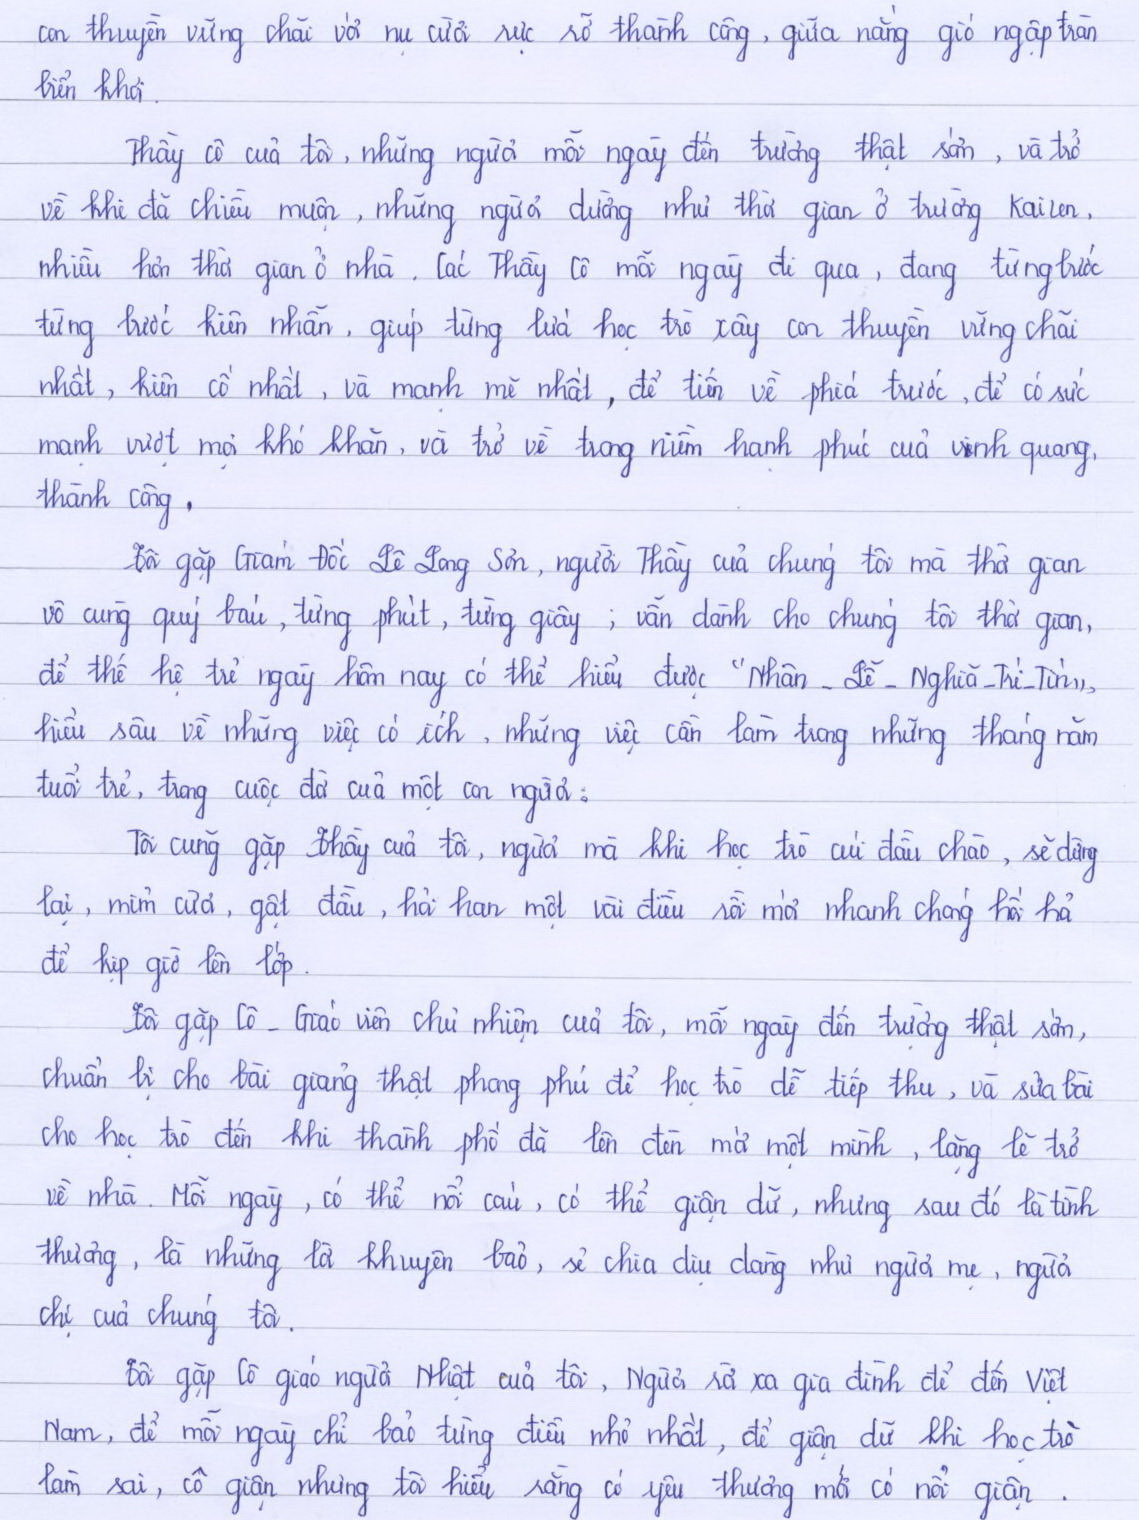 con thuyền vững chãi với nụ cười rực rỡ thành công, giữa nắng gió ngập tràn
biển khơi.
Thầy cô của tôi, những người mỗi ngày đến trường thật sớm, và trở
về khi đã chiều muộn, những người dường như thời gian ở trường Kaizen,
nhiều hơn thời gian ở nhà. Các Thầy Cô mỗi ngày đi qua, đang từng bước
từng bước kiên nhẫn, giúp từng lứa học trò xây con thuyền vững chãi
nhất, kiên cố nhất, và mạnh mẽ nhất, để tiến về phía trước, để có sức
mạnh vượt mọi khó khăn, và trở về trong niềm hạnh phúc của vinh quang,
thành công.
Tôi gặp Giám Đốc Lê Long Sơn, người Thầy của chúng tôi mà thời gian
vô cùng quý báu, từng phút, từng giây; vẫn dành cho chúng tôi thời gian,
để thế hệ trẻ ngày hôm nay có thể hiểu được "Nhân - Lễ - Nghĩa - Trí - Tín",
hiểu sâu về những việc có ích, những việc cần làm trong những tháng năm
tuổi trẻ, trong cuộc đời của một con người.
Tôi cũng gặp Thầy của tôi, người mà khi học trò cúi đầu chào, sẽ dừng
lại, mỉm cười, gật đầu, hỏi han một vài điều rồi mới nhanh chóng hối hả
để kịp giờ lên lớp.
Tôi gặp Cô - Giáo viên chủ nhiệm của tôi, mỗi ngày đến trường thật sớm,
chuẩn bị cho bài giảng thật phong phú để học trò dễ tiếp thu, và sửa bài
cho học trò đến khi thành phố đã lên đèn mới một mình, lặng lẽ trở
về nhà. Mỗi ngày, có thể nổi cáu, có thể giận dữ, nhưng sau đó là tình
thương, là những lời khuyên bảo, sẻ chia dịu dàng như người mẹ, người
chị của chúng tôi.
Tôi gặp Cô giáo người Nhật của tôi, Người rời xa gia đình để đến Việt
Nam, để mỗi ngày chỉ bảo từng điều nhỏ nhất, để giận dữ khi học trò
làm sai, cô giận nhưng tôi hiểu rằng có yêu thương mới có nổi giận.